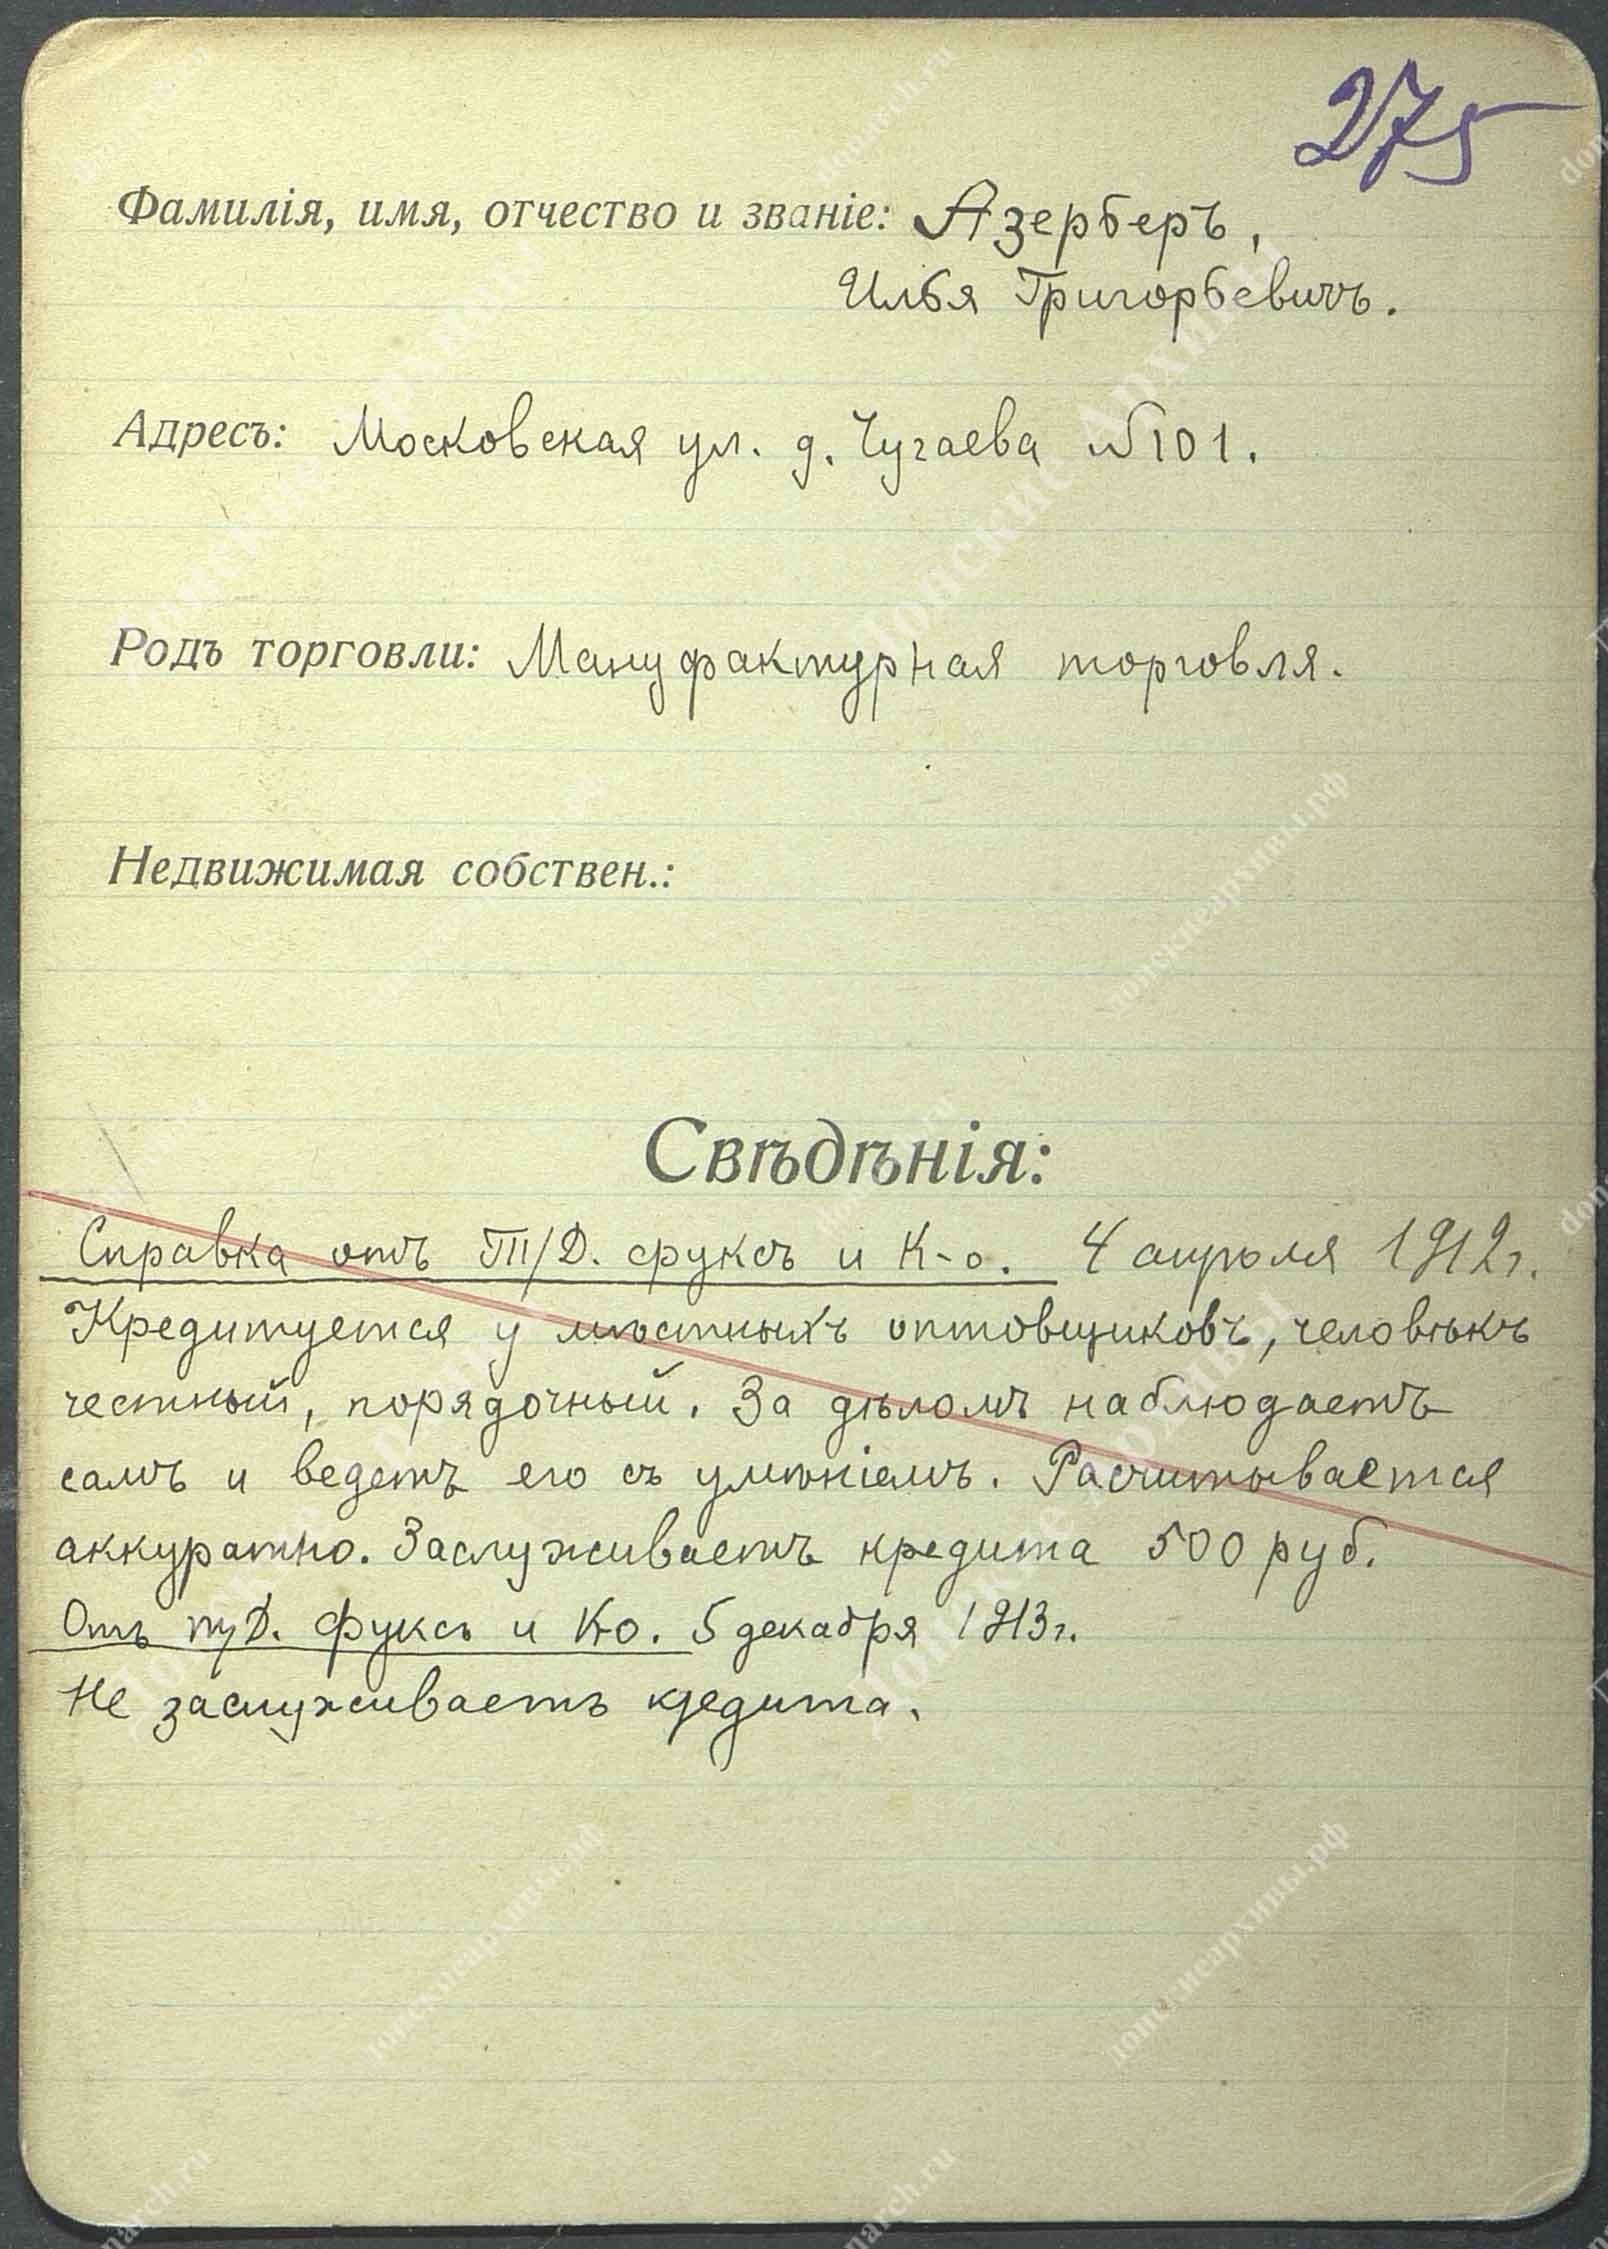 275
Фамилія, имя, отчество и званіе: Азерберъ,
Илья Григорьевичъ.
Адресъ: Московская ул. д. Чугаева №101.
Родъ торговли: Мануфактурная торговля.
Недвижимая собствен.:
Свѣдѣнія:
Справка отъ Т/Д. Фуксъ и К-о. 4 апрѣля 1912г.
Кредитуется у мѣстныхъ оптовщиковъ, человѣкъ
честный, порядочный. За дѣломъ наблюдаетъ
самъ и ведетъ его съ умѣніемъ. Расчитывается
аккуратно. Заслуживаетъ кредита 500 руб.
Отъ т/Д. Фуксъ и Ко. 5 декабря 1913г.
Не заслуживаетъ кредита.